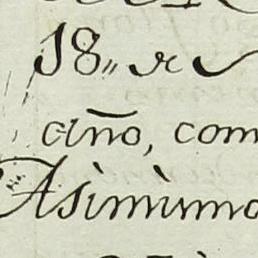 18,, de
año, com
Asimismo